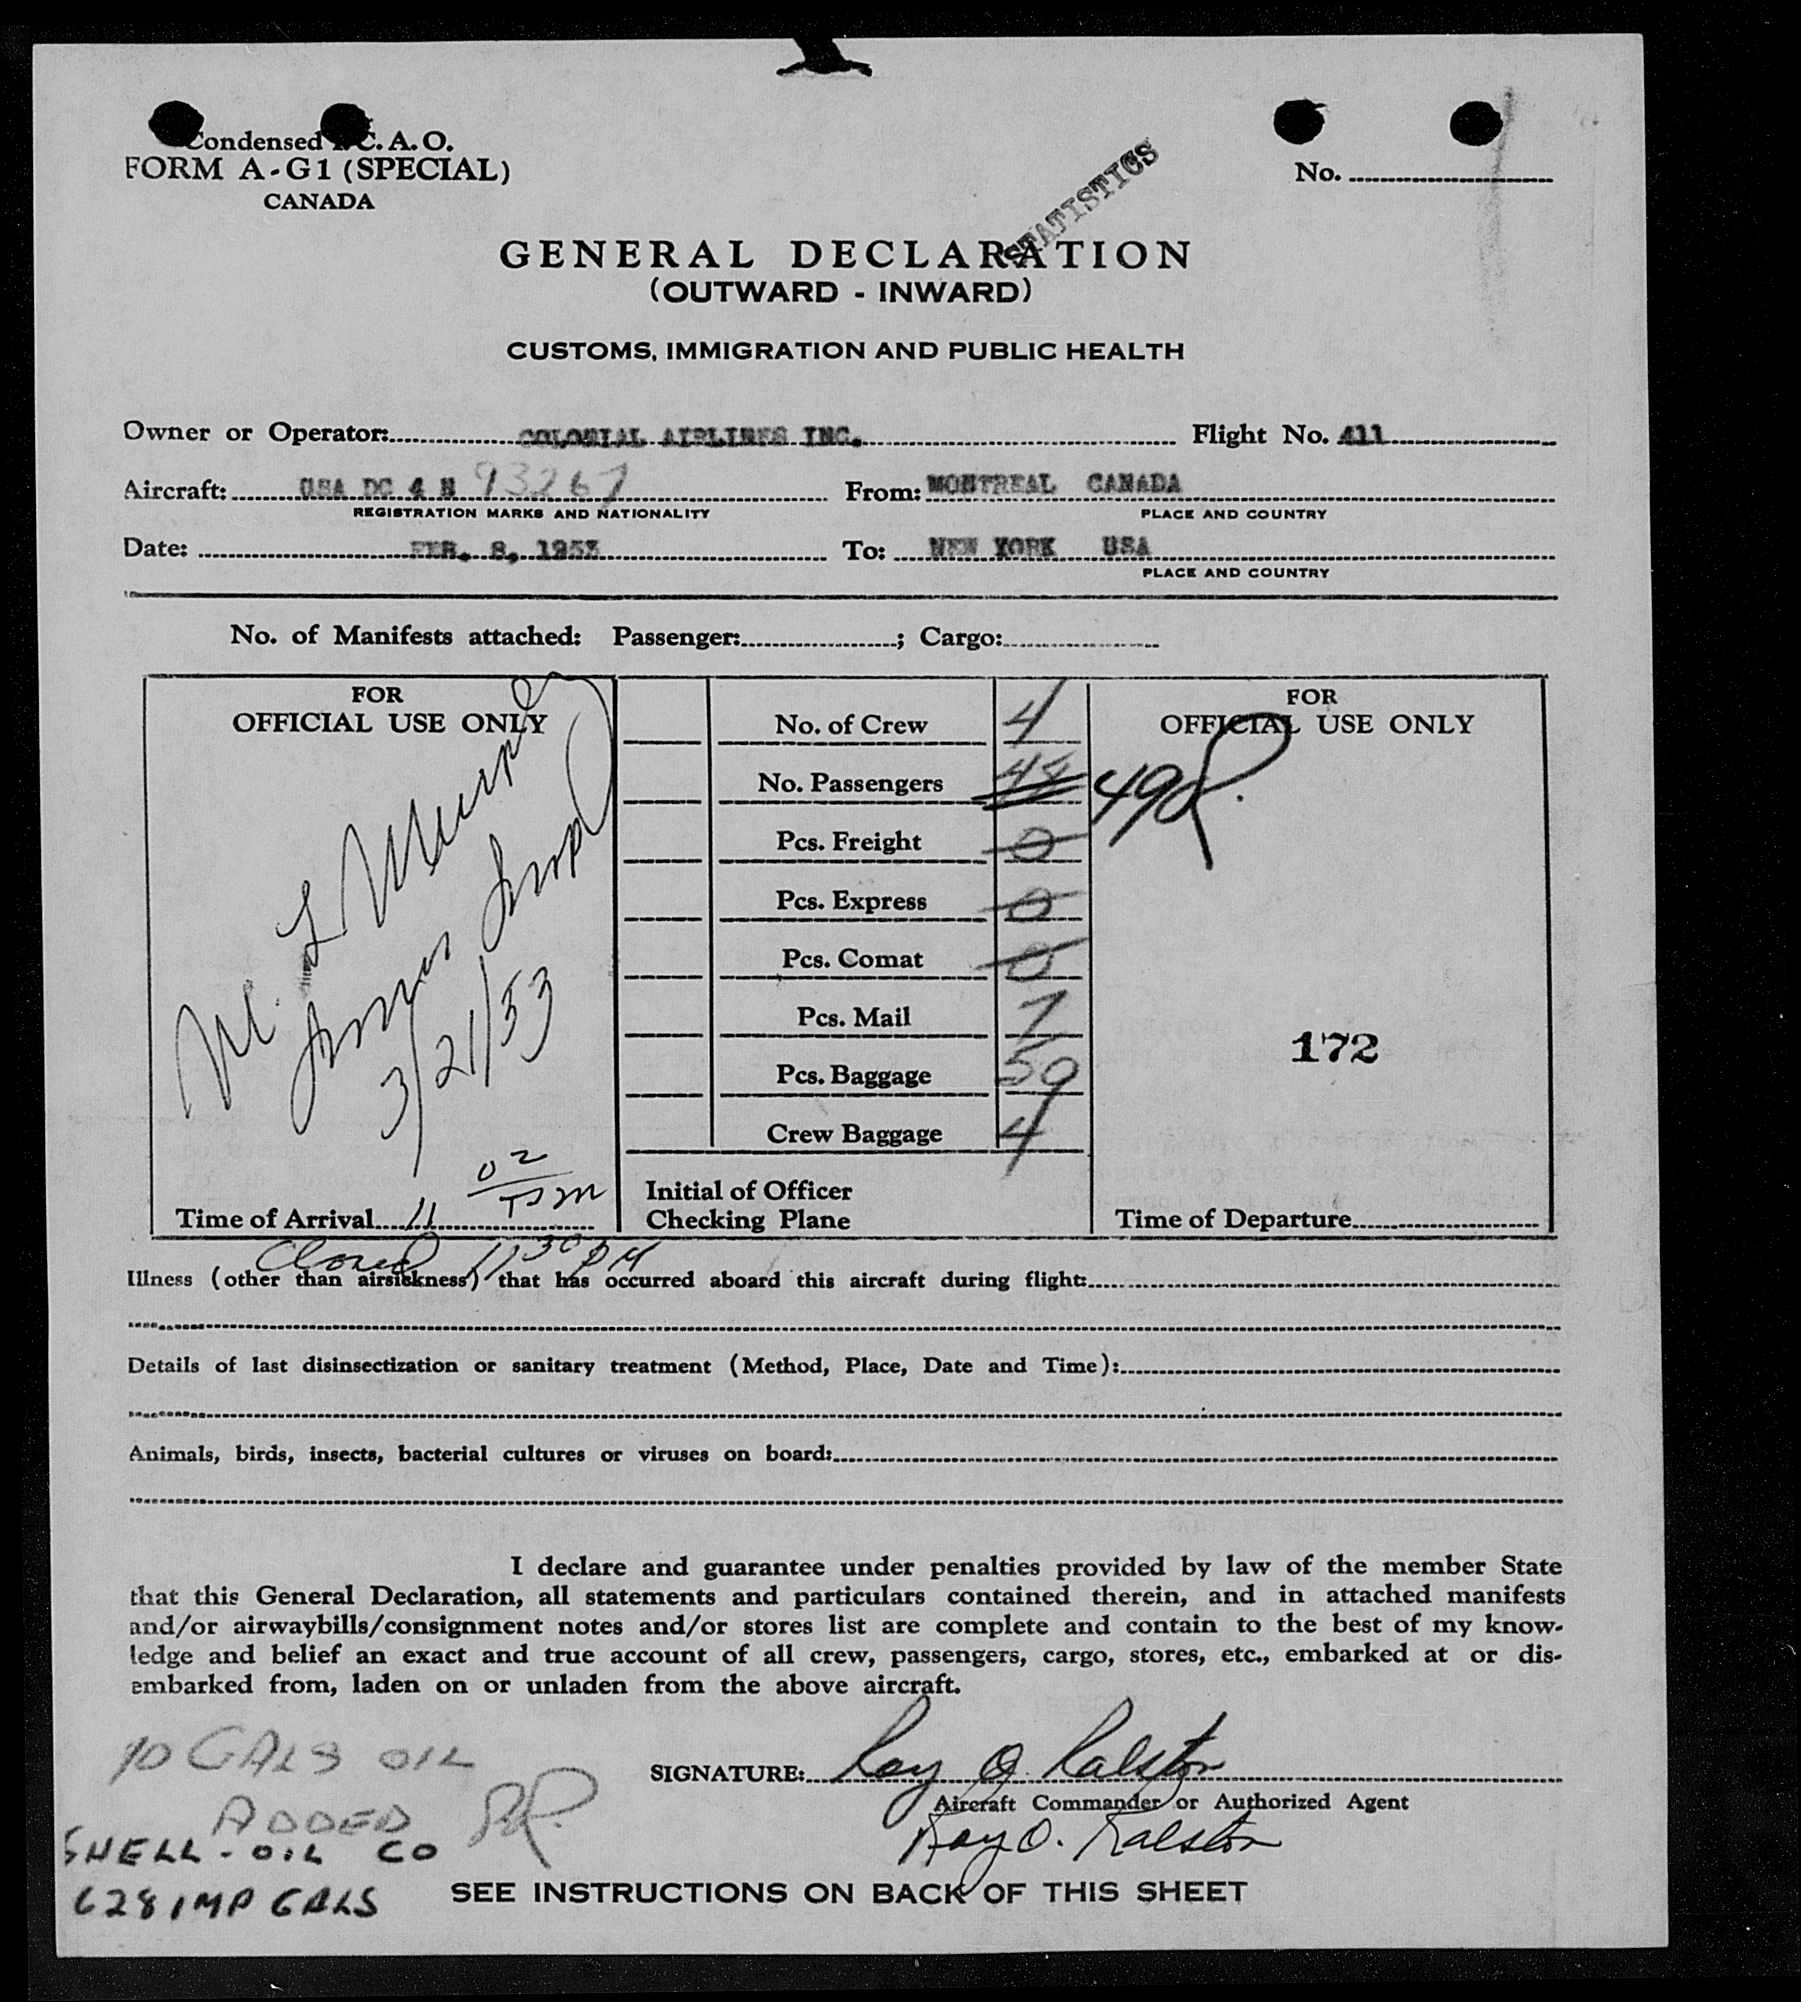 Condensed I. C. A. O.
FORM A-G1 (SPECIAL)
CANADA
No.
STATISTICS
GENERAL DECLARATION
(OUTWARD - INWARD)
CUSTOMS, IMMIGRATION AND PUBLIC HEALTH
Owner or Operator: COLONIAL AIRLINES INC. Flight No. 411
Aircraft: USA DC 4 N 93267 From: MONTREAL CANADA
REGISTRATION MARKS AND NATIONALITY PLACE AND COUNTRY
Date: FEB. 8, 1953 To: NEW YORK USA
PLACE AND COUNTRY
No. of Manifests attached: Passenger: ; Cargo:
FOR
OFFICIAL USE ONLY
M. L Murphy
Immig Insp
3/21/53
Time of Arrival 11 02 PM
Closed 11 30 PM
No. of Crew 4
No. Passengers 48 49
Pcs. Freight 0
Pcs. Express 0
Pcs. Comat 0
Pcs. Mail 7
Pcs. Baggage 59
Crew Baggage 4
Initial of Officer
Checking Plane
FOR
OFFICIAL USE ONLY
172
Time of Departure
Illness (other than airsickness) that has occurred aboard this aircraft during flight:
Details of last disinsectization or sanitary treatment (Method, Place, Date and Time):
Animals, birds, insects, bacterial cultures or viruses on board:
I declare and guarantee under penalties provided by law of the member State
that this General Declaration, all statements and particulars contained therein, and in attached manifests
and/or airwaybills/consignment notes and/or stores list are complete and contain to the best of my know-
ledge and belief an exact and true account of all crew, passengers, cargo, stores, etc., embarked at or dis-
embarked from, laden on or unladen from the above aircraft.
10 GALS OIL
ADDED RR.
SHELL-OIL CO
628 IMP GALS
SIGNATURE: Ray O Ralston
Aircraft Commander or Authorized Agent
Ray O. Ralston
SEE INSTRUCTIONS ON BACK OF THIS SHEET